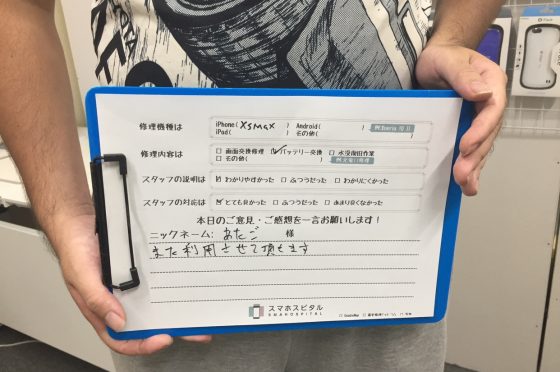 修理機種は iPhone( XSMAX ) Android( )
iPad( ) その他( )
修理内容は □画面交換修理 ☑バッテリー交換 □水没復旧作業
□その他( )
スタッフの説明は ☑わかりやすかった □ふつうだった □わかりにくかった
スタッフの対応は ☑とても良かった □ふつうだった □あまり良くなかった
本日のご意見・ご感想を一言お願いします!
ニックネーム: あたご 様
また利用させて頂きます
スマホスピタル
SMAHOSPITAL